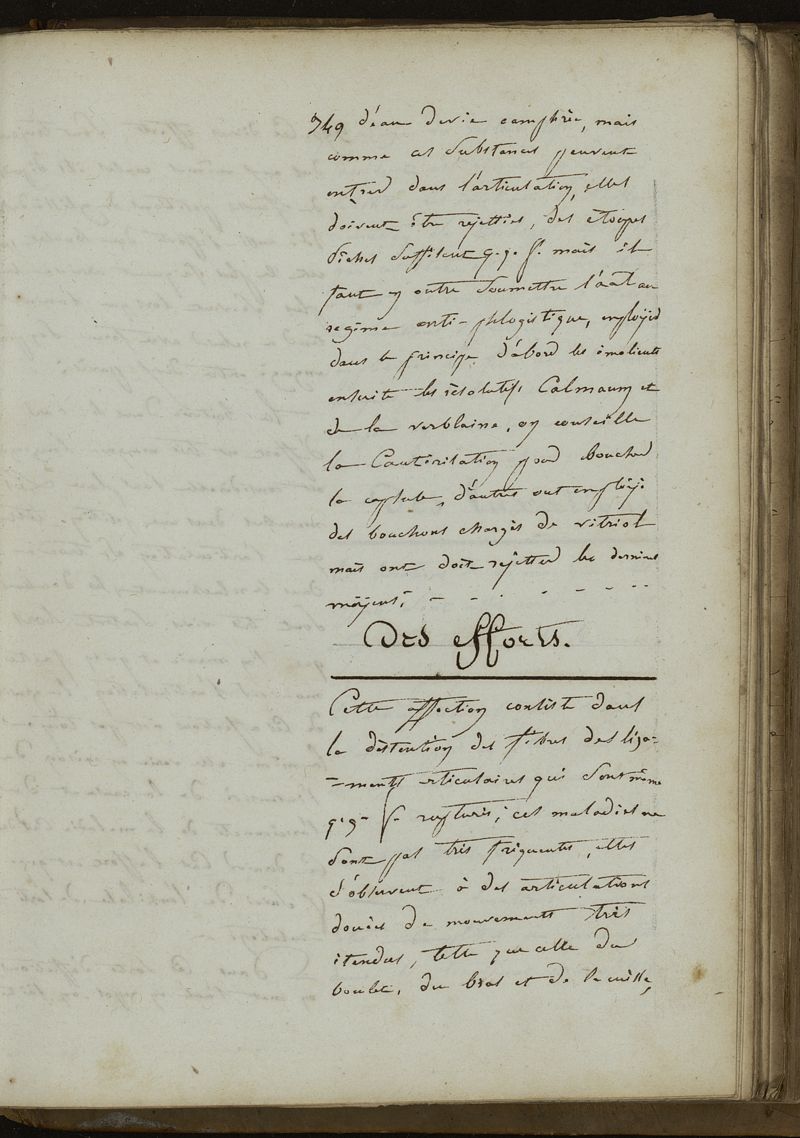 749 d'éau devie camphrée, mais
comme ces substances peuvent
entrer dans l'articulation, elles
doivent être rejettées, des étoupes
sèches suffisent q.q. f. mais il
faut en outre soumettre l'a'al au
regime anti-phlogistique, employer
dans le principe d'abord les émolients
ensuite les résolutifs Calmaum et
de la verblaine, on conseille
la Cautérisation pour boucher
la capsule, d'autres ont employé
des bouchons chargés de vitriol
mais ont doit rejetter les derniers
moyens.
Des efforts.
Cette affection consiste dans
la distention des fibres des liga-
-ments articulaires qui sont même
q.q. f. rupturés; ces maladies ne
sont pas très fréquentes, elles
s'observent à des articulations
douées de mouvements très
étendus, telle que celle du
boulet, du bras et de la cuisse,